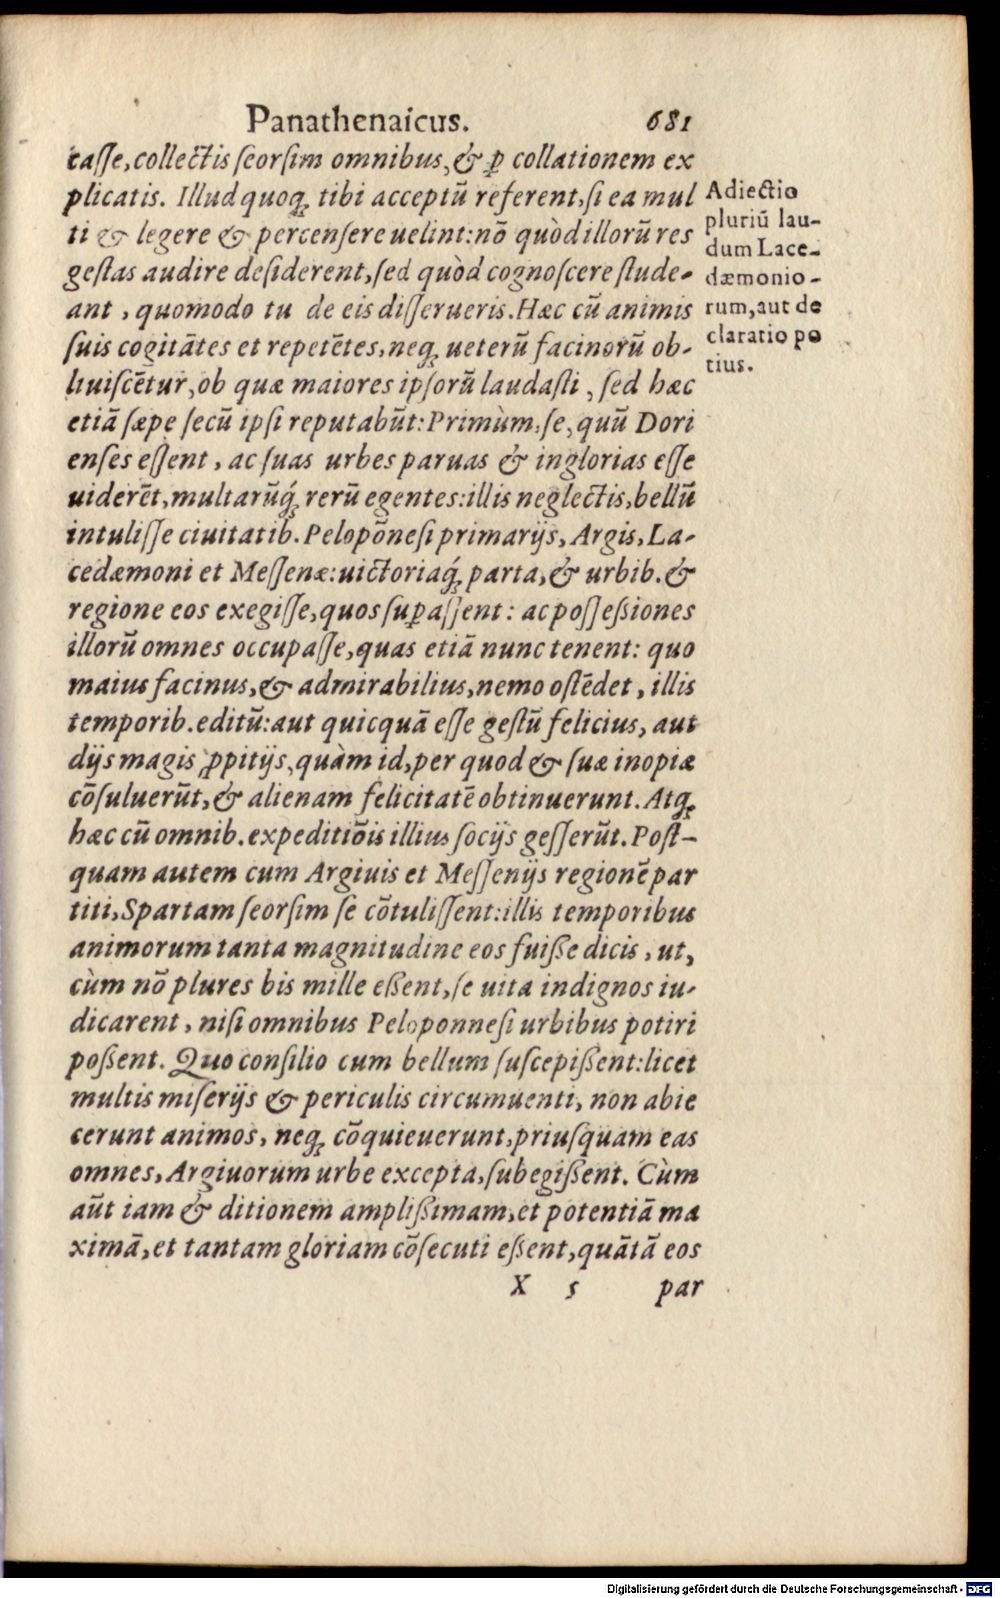 Panathenaicus. 681
casſe, collectis ſeorſim omnibus, & ꝑ collationem ex
plicatis. Illud quoqꝫ tibi acceptū referent, ſi ea mul
ti & legere & percenſere uelint: nō quòd illorū res
geſtas audire deſiderent, ſed quòd cognoſcere ſtude-
ant, quomodo tu de eis diſſerueris. Hæc cū animis
ſuis cogitātes et repetētes, neqꝫ ueterū facinorū ob-
liuiſcētur, ob quæ maiores ipſorū laudaſti, ſed hæc
etiā ſæpe ſecū ipſi reputabūt: Primùm, ſe, quū Dori
enſes eſſent, ac ſuas urbes paruas & inglorias eſſe
uiderēt, multarūq́ꝫ rerū egentes: illis neglectis, bellū
intuliſſe ciuitatib. Pelopōneſi primarijs, Argis, La-
cedæmoni et Meſſenæ: uictoriaq́ꝫ parta, & urbib. &
regione eos exegiſſe, quos ſuꝑaſſent: ac poſſeßiones
illorū omnes occupaſſe, quas etiā nunc tenent: quo
maius facinus, & admirabilius, nemo oſtēdet, illis
temporib. editū: aut quicquā eſſe geſtū felicius, aut
dijs magis ꝓpitijs, quàm id, per quod & ſuæ inopiæ
cōſuluerūt, & alienam felicitatē obtinuerunt. Atqꝫ
hæc cū omnib. expeditiōis illius ſocijs geſſerūt. Poſt-
quam autem cum Argiuis et Meſſenijs regionē par
titi, Spartam ſeorſim ſe cōtuliſſent: illis temporibus
animorum tanta magnitudine eos fuiße dicis, ut,
cùm nō plures bis mille eßent, ſe uita indignos iu-
dicarent, niſi omnibus Peloponneſi urbibus potiri
poßent. Quo conſilio cum bellum ſuſcepißent: licet
multis miſerijs & periculis circumuenti, non abie
cerunt animos, neqꝫ cōquieuerunt, priuſquam eas
omnes, Argiuorum urbe excepta, ſubegißent. Cùm
aūt iam & ditionem amplißimam, et potentiā ma
ximā, et tantam gloriam cōſecuti eßent, quātā eos
X 5 par
Adiectio
pluriū lau-
dum Lace-
dæmonio-
rum, aut de
claratio po
tius.
Digitalisierung gefördert durch die Deutsche Forschungsgemeinschaft - DFG